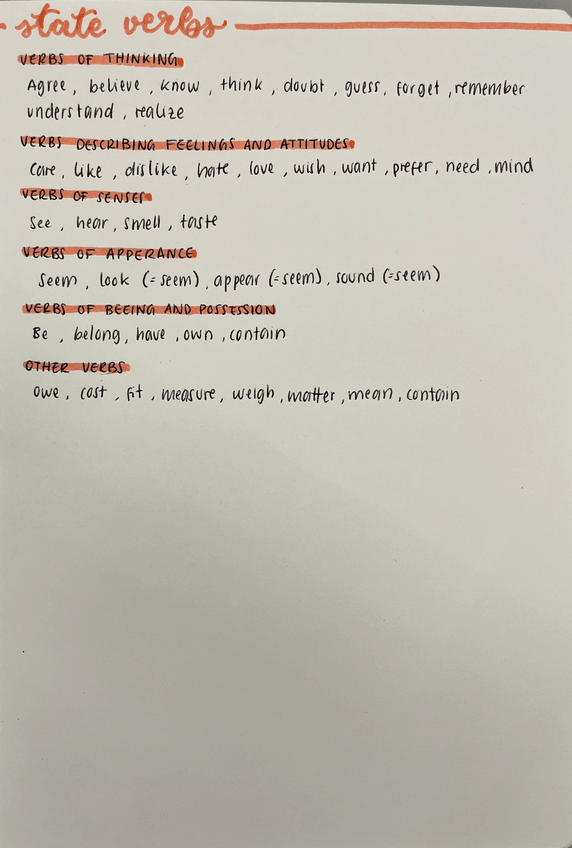 state verbs
VERBS OF THINKING
Agree, believe, know, think, doubt, guess, forget, remember
understand, realize
VERBS DESCRIBING FEELINGS AND ATTITUDES
Care, like, dislike, hate, love, wish, want, prefer, need, mind
VERBS OF SENSES
See, hear, smell, taste
VERBS OF APPERANCE
Seem, look (=seem), appear (=seem), sound (=seem)
VERBS OF BEEING AND POSSESSION
Be, belong, have, own, contain
OTHER VERBS
Owe, cost, fit, measure, weigh, matter, mean, contain